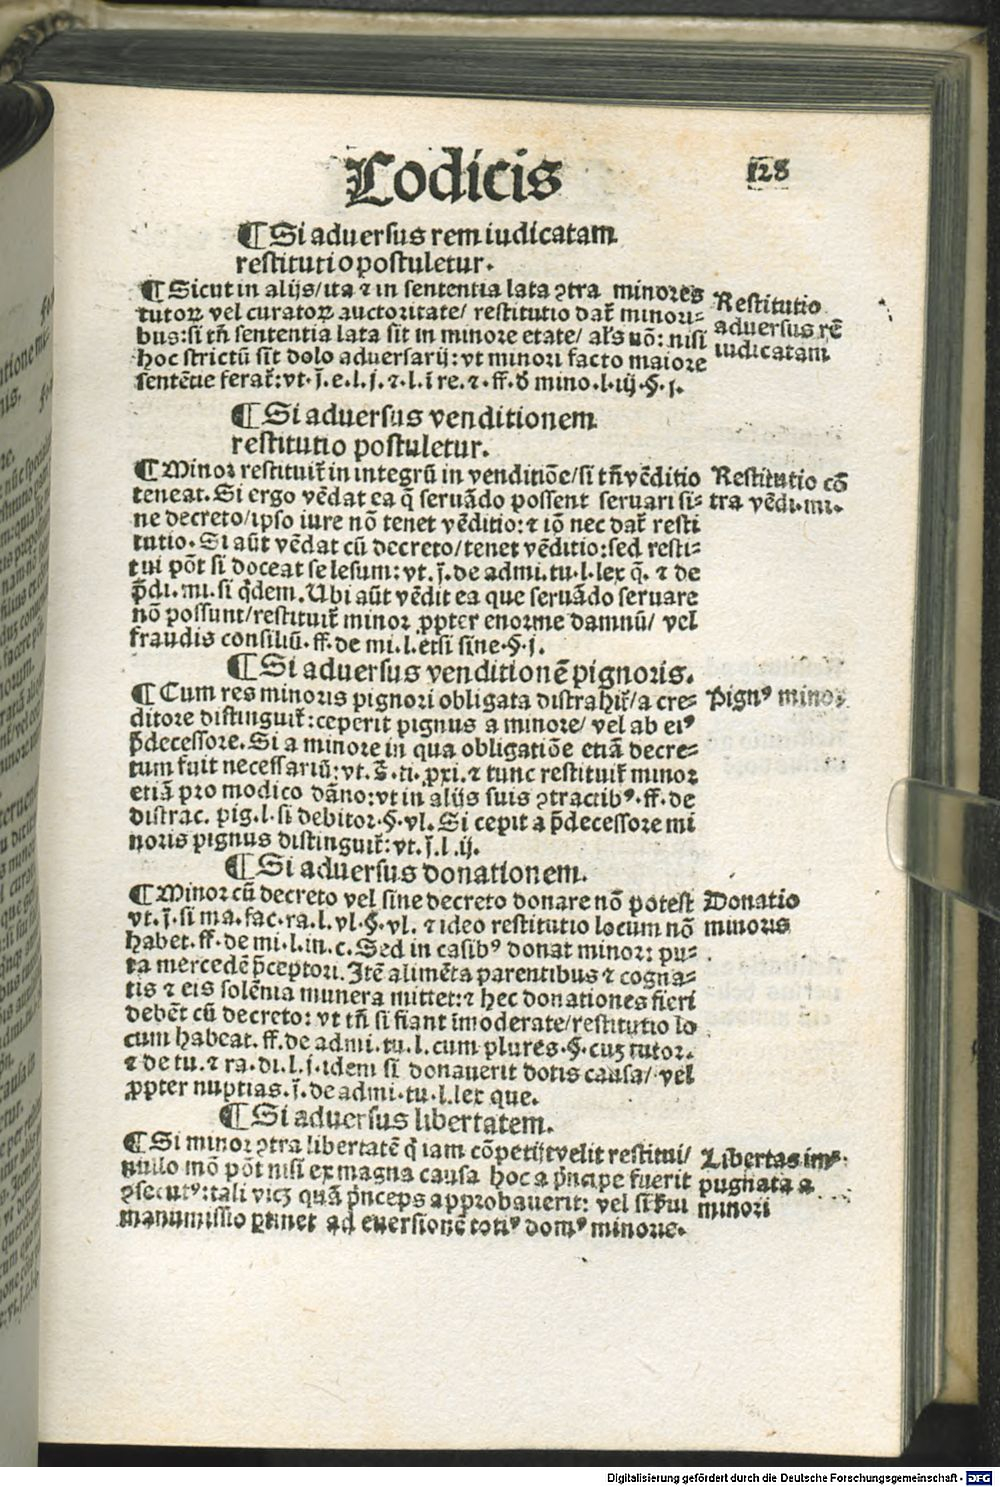 Codicis 128
¶ Si aduersus rem iudicatam
restitutio postuletur.
¶ Sicut in alijs/ita ⁊ in sententia lata ꝯtra minores
tutoꝝ vel curatoꝝ auctoritate/ restitutio dat᷑ minori-
bus:si tñ sententia lata sit in minore etate/ als̄ nō: nisi
hoc strictū sit dolo aduersarij:vt minori facto maiore
sentētie ferat᷑:vt.j̄.e.l.j.⁊.l.ī re.⁊.ff.d̄ mino.l.iij.§.j.
Restitutio
aduersus rē
iudicatam
¶ Si aduersus venditionem
restitutio postuletur.
¶ Minor restituit᷑ in integrū in venditiōe/si tñ vēditio
teneat. Si ergo vēdat ea q̄ seruādo possent seruari si-
ne decreto/ipso iure nō tenet vēditio:⁊ iō nec dat᷑ resti
tutio. Si aūt vēdat cū decreto/tenet vēditio:sed resti-
tui pōt si doceat se lesum: vt.j̄.de admi.tu.l.lex q̄. ⁊ de
p̄di.mi.si q̇dem. Ubi aūt vēdit ea que seruādo seruare
nō possunt/restituit᷑ minor ꝓpter enorme damnū/ vel
fraudis consiliū.ff.de mi.l.etsi sine.§.j.
Restitutio cō
tra vēdi.mi.
¶ Si aduersus venditionē pignoris.
¶ Cum res minoris pignori obligata distrahit᷑/a cre-
ditore distinguit᷑:ceperit pignus a minore/ vel ab eiꝰ
p̄decessore. Si a minore in qua obligatiōe etiā decre-
tum fuit necessariū:vt.s̄.ti.ꝓxi.⁊ tunc restituit᷑ minor
etiā pro modico dāno:vt in alijs suis ꝯtractibꝰ.ff.de
distrac. pig.l.si debitor.§.vl. Si cepit a p̄decessore mi
noris pignus distinguit᷑:vt.j̄.l.ij.
Pignꝰ minoꝝ
¶ Si aduersus donationem.
¶ Minor cū decreto vel sine decreto donare nō potest
vt.j̄.si ma.fac.ra.l.vl.§.vl. ⁊ ideo restitutio locum nō
habet.ff.de mi.l.in.c. Sed in casibꝰ donat minor: pu-
ta mercedē p̄ceptori. Itē alimēta parentibus ⁊ cogna-
tis ⁊ eis solēnia munera mittet:⁊ hec donationes fieri
debēt cū decreto: vt tñ si fiant īmoderate/restitutio lo
cum habeat.ff.de admi.tu.l.cum plures.§.cuꝫ tutor.
⁊ de tu.⁊ ra.di.l.j.idem si donauerit dotis causa/ vel
ꝓpter nuptias.j̄.de admi.tu.l.lex que.
Donatio
minoris
¶ Si aduersus libertatem.
¶ Si minor ꝯtra libertatē q̇ iam cōpetijt velit restitui/
nullo mō pōt nisi ex magna causa hoc a p̄ncipe fuerit
ꝯsecutꝰ:tali vicꝫ quā p̄nceps approbauerit: vel si
manumissio ꝑtinet ad euersionē totiꝰ domꝰ minorie.
Libertas imꝰ
pugnata a
minori
Digitalisierung gefördert durch die Deutsche Forschungsgemeinschaft - DFG